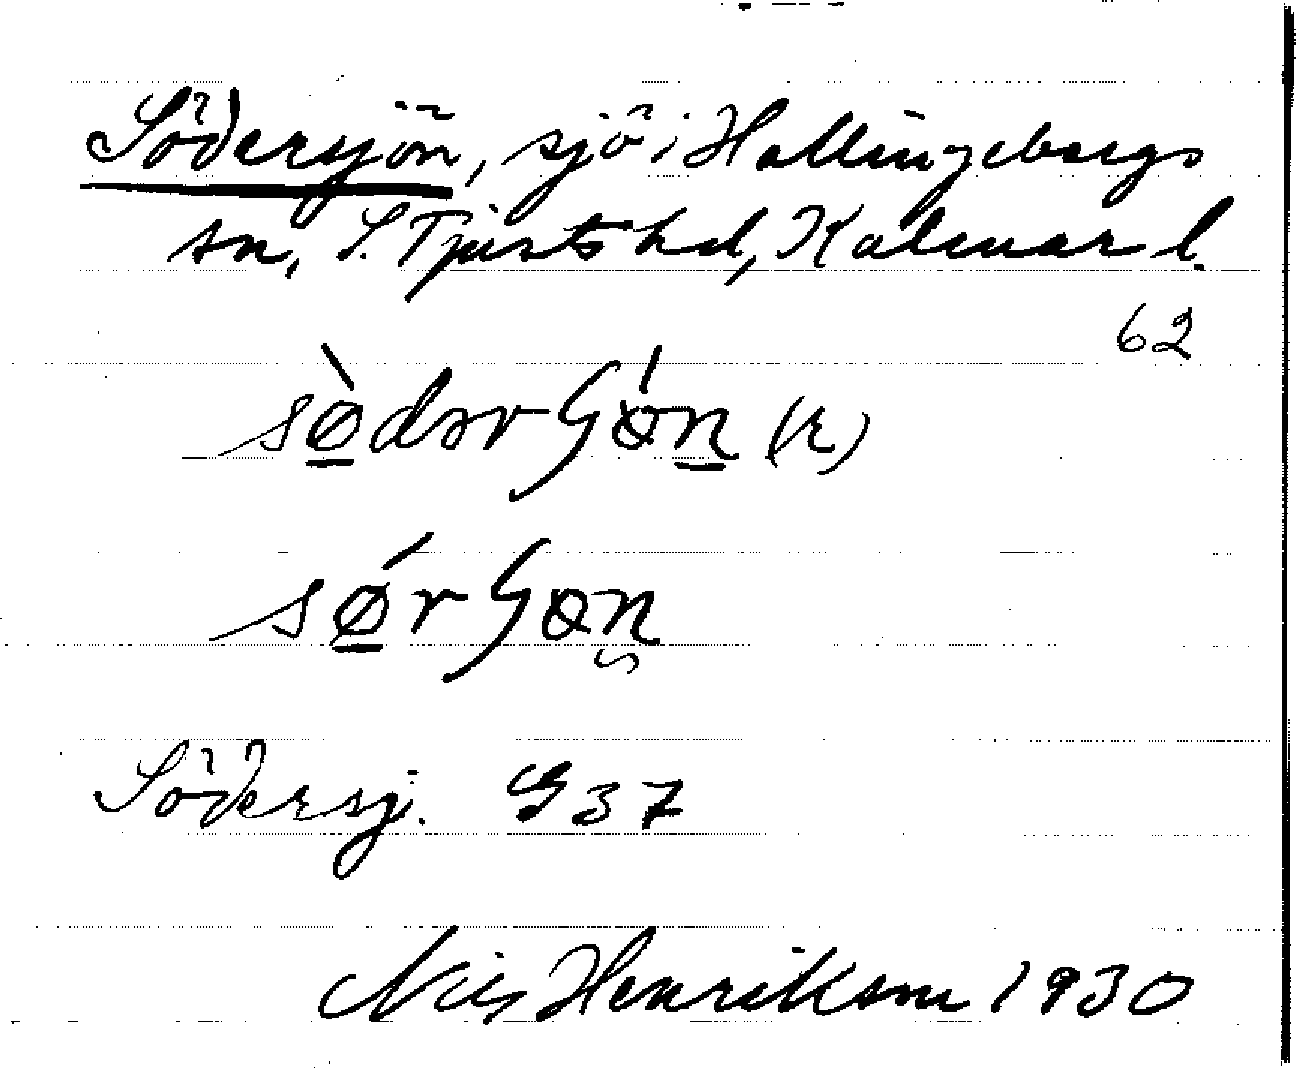 Södersjön, sjö i Hallingebergs
sn, S. Tjusts hd, Kalmar l.
62
sø̀dərʃøn (r)
sǿrʃøn
Södersj. G 37
Nils Henriksson 1930